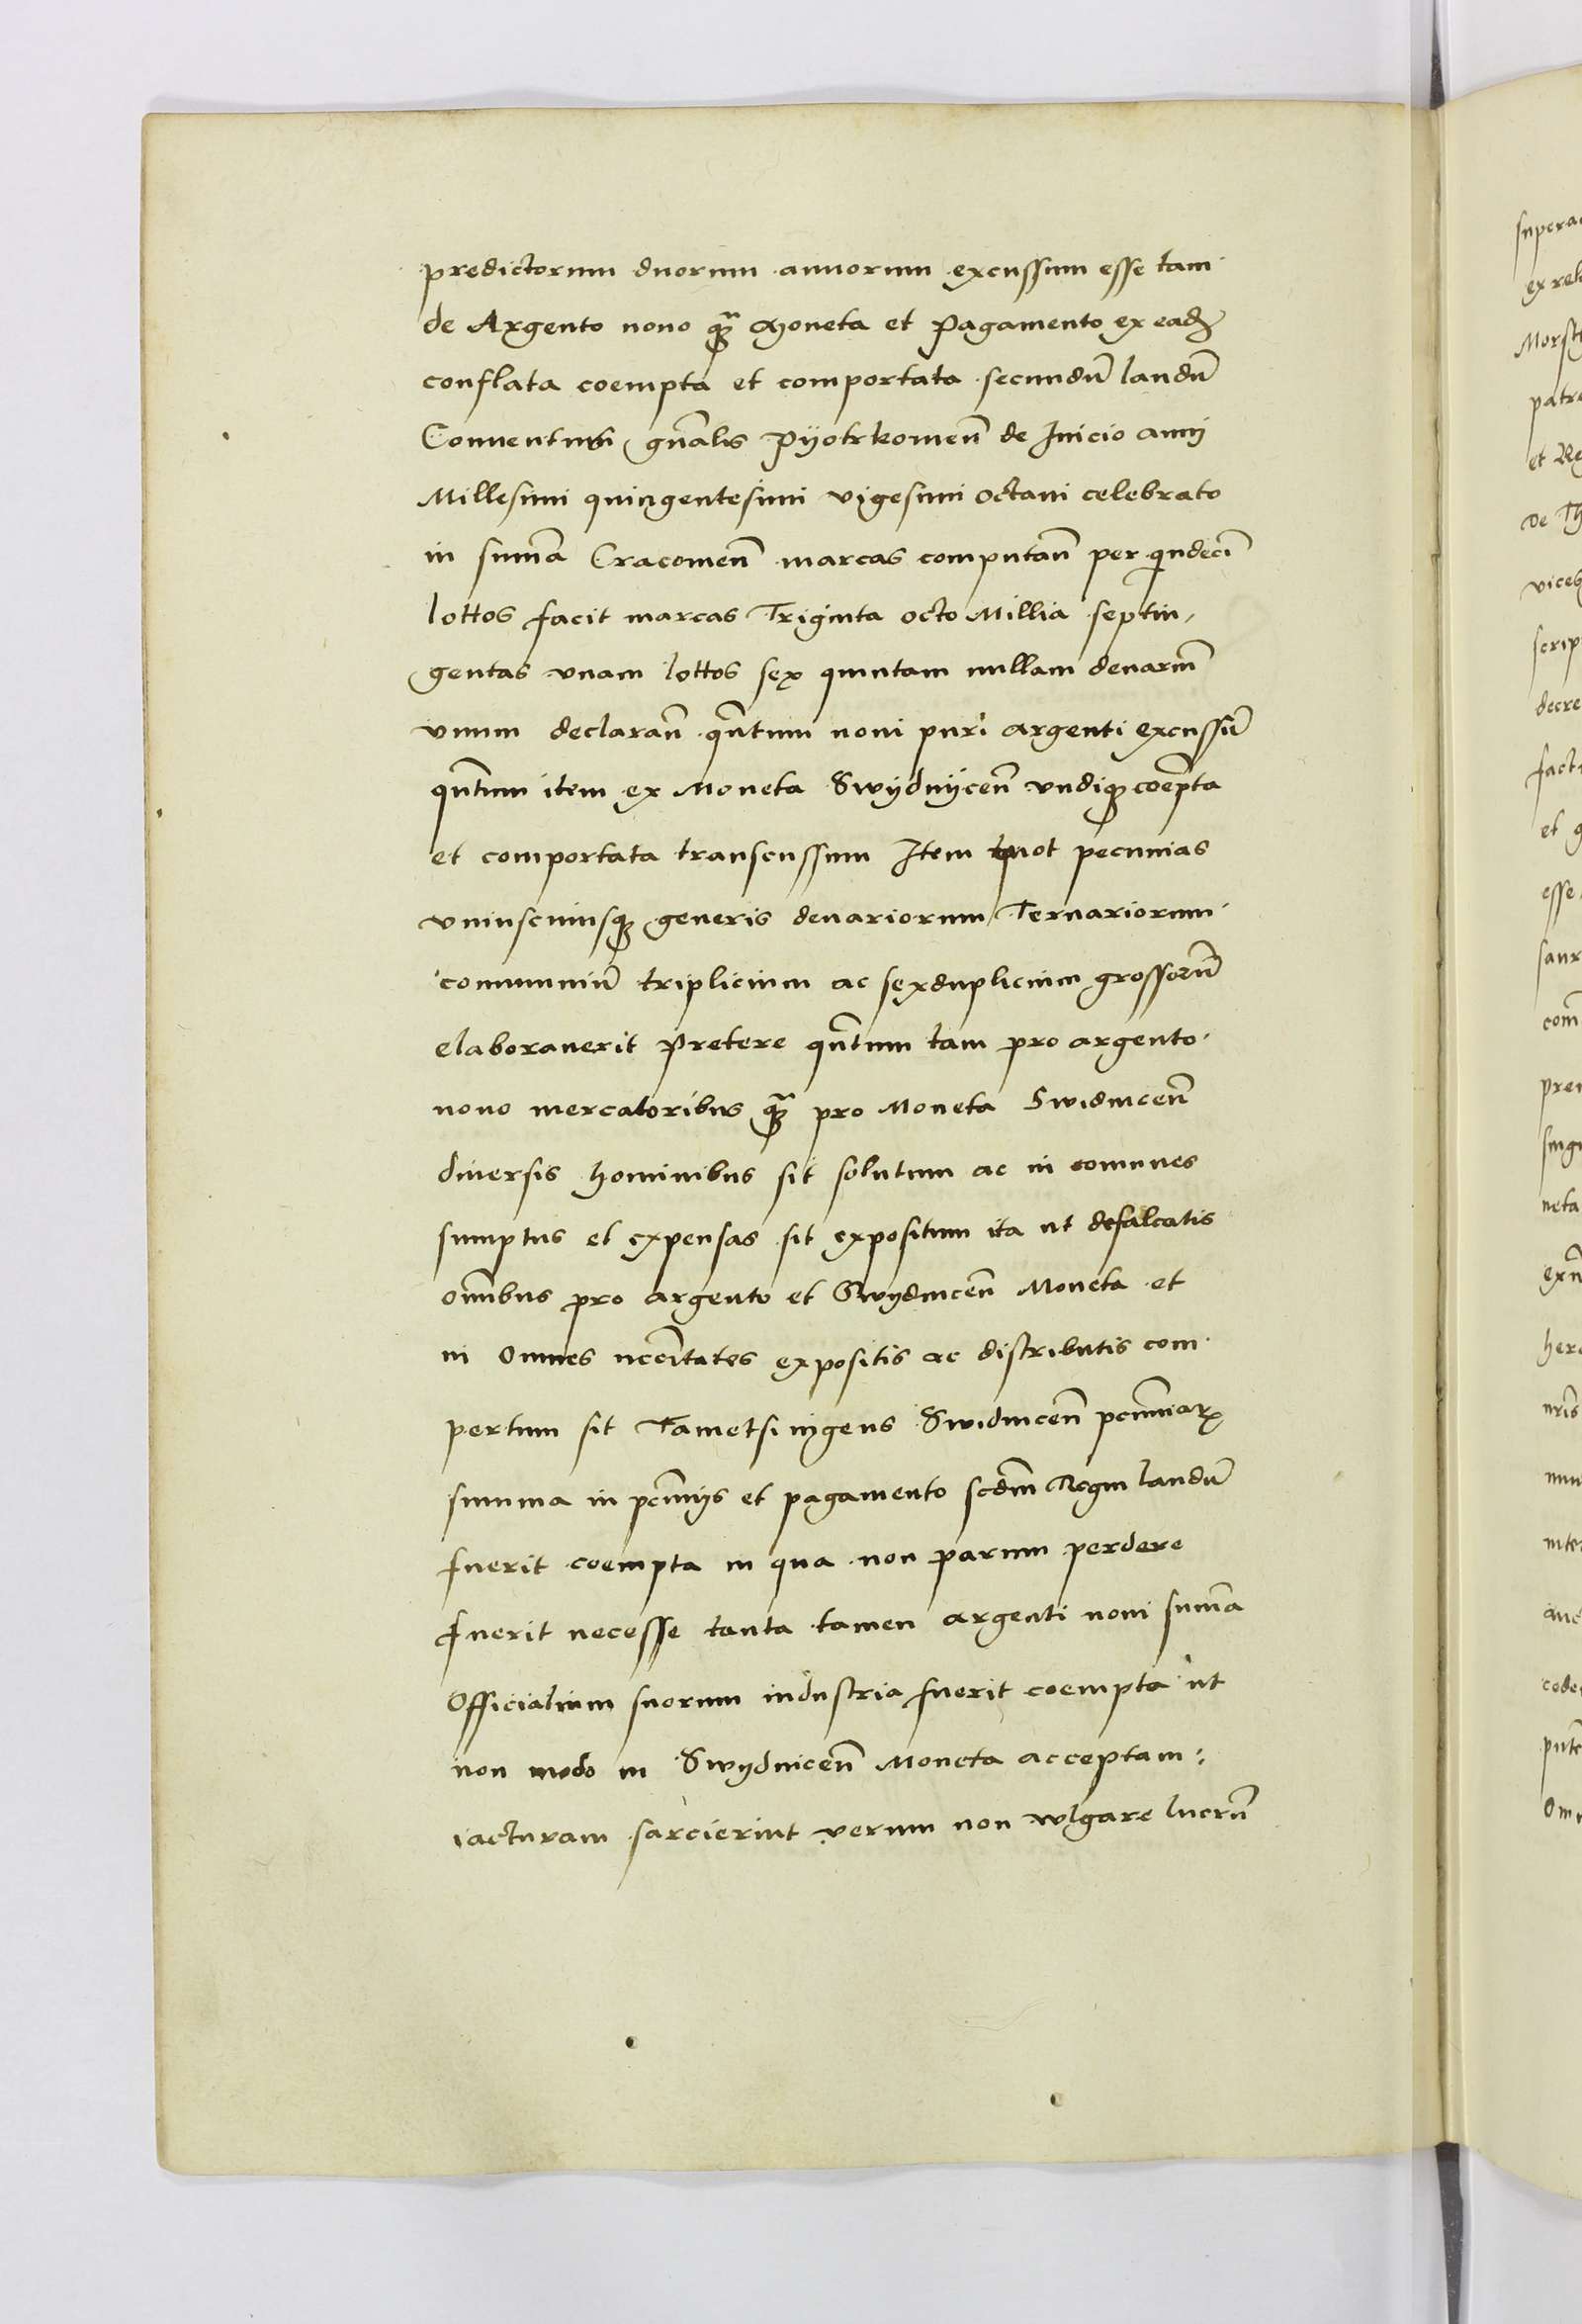 predictorum duorum annorum excussum esse tam
de Argento nouo q̃ Moneta et Pagamento ex eadẽ
conflata coempta et comportata secundũ laudũ
Conuentus gñalis Pyotrkouieñ de Inicio anni
Millesimi quingentesimi vigesimi octaui celebrato
in sum̃a Cracouieñ marcas computañ per qindecĩ
lottos facit marcas Triginta octo Millia septin,
gentas vnam lottos sex quintam nullam denariũ
vnum declarañ qñtum noui puri argenti excussũ
qñtum item ex Moneta Swydnyceñ vndiqꝫ coempta
et comportata transcussum Item quot pecunias
vniuscuiusqꝫ generis denariorum Ternariorum
communiũ triplicium ac sexduplicium grossorũ
elaborauerit Pretere qñtum tam pro argento
nouo mercatoribus q̃ pro Moneta Swidniceñ
diuersis hominibus sit solutum ac in comunes
sumptus et expensas sit expositum ita ut defalcatis
om̃ibus pro argento et Swydniceñ Moneta et
in Omnes nccĩtates expositis ac distributis com
pertum sit Tametsi ingens Swidniceñ pcũniaꝝ
summa in pcũnijs et pagamento scdm̃ Regni laudũ
fuerit coempta in qua non parum perdere
fuerit necesse tanta tamen argenti noui sum̃a
Officialium suorum industria fuerit coempta ut
non modo in Swydniceñ Moneta acceptam
iacturam sarcierint verum non wlgare lucrũ